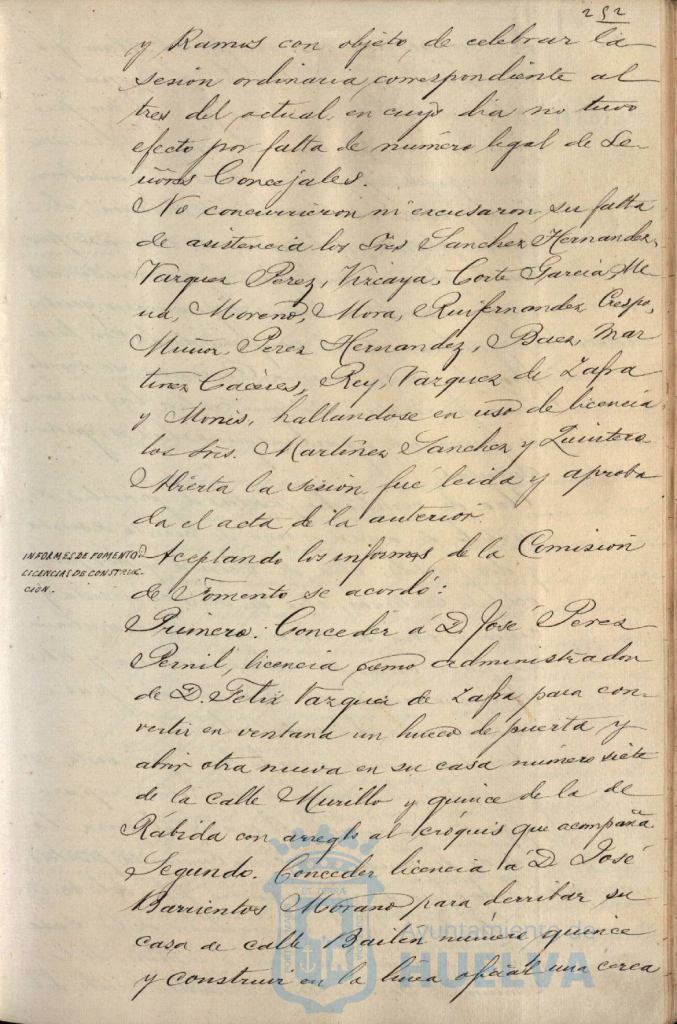 252
y Ramos con objeto, de celebrar la
sesion ordinaria correspondiente al
tres del actual, en cuyo dia no tuvo
efecto por falta de número legal de Se-
ñores Concejales.
No concurrieron ni excusaron su falta
de asistencia los Sres Sanchez Hernandez,
Vazquez Perez, Vizcaya, Corte Garcia, Me
na, Moreno, Mora, Ruifernandez, Crespo,
Muñoz, Perez Hernandez, Baez, Mar
tinez Caceres, Rey, Vazquez de Zafra
y Monis, hallandose en uso de licencia
los Sres. Martinez Sanchez y Quintero
Abierta la sesion fué leida y aproba
da el acta de la anterior.
INFORMES DE FOMENTO
LICENCIAS DE CONSTRUC-
CION.
Aceptando los informes de la Comision
de Fomento se acordó:
Primero: Conceder á D. José Perez
Pernil, licencia como administrador
de D. Felix Vazquez de Zafra para con-
vertir en ventana un hueco de puerta y
abrir otra nueva en su casa número siete
de la calle Murillo y quince de la de
Rábida con arreglo al cróquis que acompaña.
Segundo. Conceder licencia á D. José
Barrientos Morano para derribar su
casa de calle Bailen número quince
y construir en la linea oficial una cerca
Ayuntamiento de
HUELVA